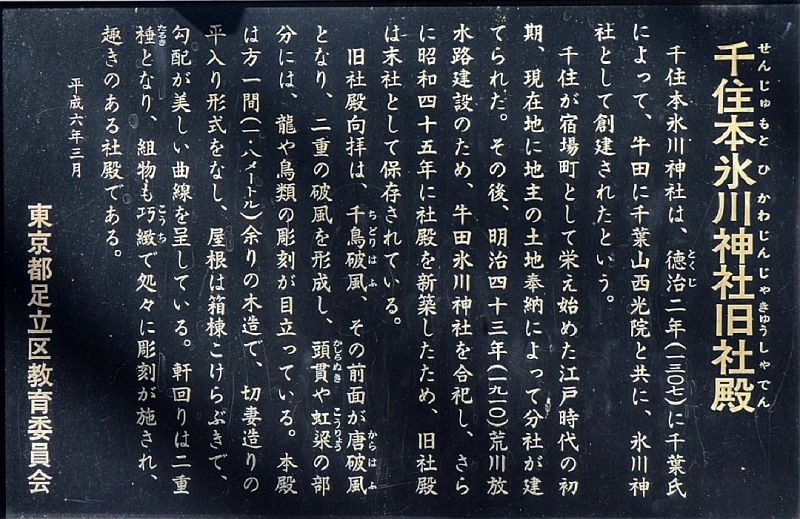 千住本氷川神社旧社殿
せんじゅもとひかわじんじゃきゅうしゃでん
千住本氷川神社は、徳治二年(一三〇七)に千葉氏
とくじ
によって、牛田に千葉山西光院と共に、氷川神
社として創建されたという。
千住が宿場町として栄え始めた江戸時代の初
期、現在地に地主の土地奉納によって分社が建
てられた。その後、明治四十三年(一九一〇)荒川放
水路建設のため、牛田氷川神社を合祀し、さら
に昭和四十五年に社殿を新築したため、旧社殿
は末社として保存されている。
旧社殿向拝は、千鳥破風、その前面が唐破風
ちどりはふ
からはふ
となり、二重の破風を形成し、頭貫や虹梁の部
かしらぬき
こうりょう
分には、龍や鳥類の彫刻が目立っている。本殿
は方一間(一・八メートル)余りの木造で、切妻造りの
平入り形式をなし、屋根は箱棟こけらぶきで、
勾配が美しい曲線を呈している。軒回りは二重
棰となり、組物も巧緻で処々に彫刻が施され、
たるき
こうち
趣きのある社殿である。
平成六年三月
東京都足立区教育委員会